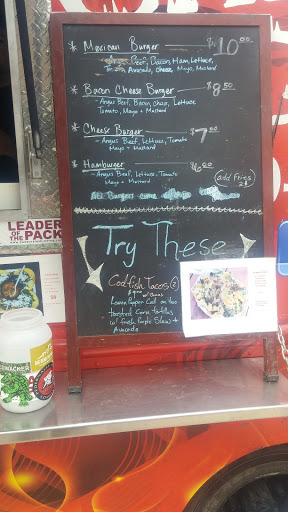 * Mexican Burger $10.00
Beef, Bacon, Ham, Lettuce,
Avocado, cheese, Mayo, Mustard
* Bacon Cheese Burger $8.50
- Angus Beef, Bacon, Chees, Lettuce
Tomato, Mayo + Mustard
* Cheese Burger $7.00
- Angus Beef, Lettuce, Tomato
Mayo + Mustard
* Hamburger $6.00
- Angus Beef, Lettuce, Tomato
Mayo + Mustard
add fries
All Burgers come
LEADER
OF THE
PACK
Try These
Codfish Tacos
Lemon Pepper Cod on two
toasted Corn tortillas
w/ fresh Purple Slaw +
Avocado